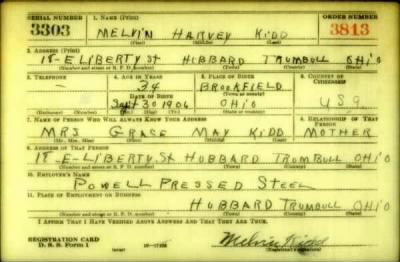 SERIAL NUMBER 1. NAME (Print) ORDER NUMBER
3303 MELVIN HARVEY KIDD 3813
(First) (Middle) (Last)
2. ADDRESS (Print)
18-E LIBERTY St HUBBARD TRUMBULL OHIO
(Number and street or R. F. D. number) (Town) (County) (State)
3. TELEPHONE 4. AGE IN YEARS 5. PLACE OF BIRTH 6. COUNTRY OF CITIZENSHIP
— 34 BROOKFIELD
DATE OF BIRTH (Town or county)
Sept 30 1906 OHIO USA
(Mo.) (Day) (Yr.) (State or country)
7. NAME OF PERSON WHO WILL ALWAYS KNOW YOUR ADDRESS 8. RELATIONSHIP OF THAT PERSON
MRS GRACE MAY KIDD MOTHER
(Mr., Mrs., Miss) (First) (Middle) (Last)
9. ADDRESS OF THAT PERSON
18-E-LIBERTY St HUBBARD TRUMBULL OHIO
(Number and street or R. F. D. number) (Town) (County) (State)
10. EMPLOYER'S NAME
POWELL PRESSED STEEL
11. PLACE OF EMPLOYMENT OR BUSINESS
HUBBARD TRUMBULL OHIO
(Number and street or R. F. D. number) (Town) (County) (State)
I AFFIRM THAT I HAVE VERIFIED ABOVE ANSWERS AND THAT THEY ARE TRUE.
REGISTRATION CARD
D. S. S. Form 1 Melvin Kidd
(Registrant's signature)